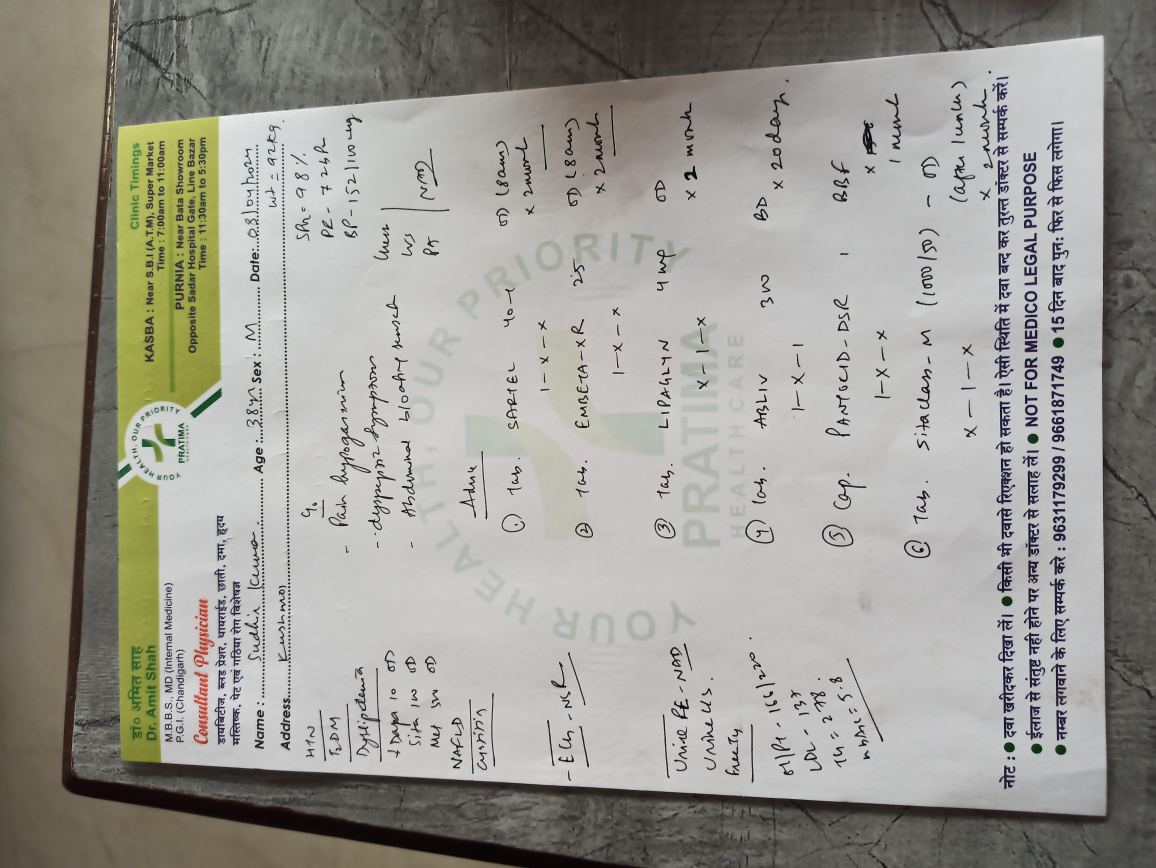 डा० अमित साह
Dr. Amit Shah
M.B.B.S, MD (Internal Medicine)
P.G.I. (Chandigarh)
Consultant Physician
डायबिटीज, ब्लड प्रेशर, थायराईड, छाती, दमा, हृदय
मस्तिष्क, पेट एवं गठिया रोग विशेषज्ञ
YOUR HEALTH, OUR PRIORITY
PRATIMA
HEALTHCARE
Clinic Timings
KASBA : Near S.B.I (A.T.M), Super Market
Time : 7:00am to 11:00am
PURNIA : Near Bata Showroom
Opposite Sadar Hospital Gate, Line Bazar
Time : 11:30am to 5:30pm
Name : Sudhir Kumar Age : 38 Sex : M Date: 08/04/2024
Address
wt = 92kg.
HTN
T2DM
Dyslipidemia
Dapa 10 OD
Sita 100 OD
Met 500 OD
NAFLD
- ECG - NSR
Urine RE - NAD
Urine c/s.
Free T4
OT/PT - 166/220.
LDL - 137
TG = 278.
HbA1c = 5.8
SPO2 = 98%
PR - 72 bpm
BP - 152/100 mmHg
Chest
CVS
PA
NAD
- Pain hypogastrium
- dyspepsia symptoms
- Abdominal bloating
Advice
① Tab. SARTEL 40-1 OD (8am)
1-x-x x 2 month
② Tab. EMBETA-XR 25 OD (8am)
1-x-x x 2 month
③ Tab. LIPAGLYN 4 mg OD
x-1-x x 2 month
④ Tab. ABLIV 300 BD
1-x-1 x 20 days.
⑤ Cap PANTOCID-DSR 1 BBF
1-x-x x 1 month
⑥ Tab. Sitaclass-M (1000/50) - OD
x-1-x (after lunch)
x 2 month.
YOUR HEALTH, OUR PRIORITY
PRATIMA
HEALTH CARE
नोट : ● दवा खरीदकर दिखा लें। ● किसी भी दवासे रिएक्शन हो सकता है। ऐसी स्थिति में दवा बन्द कर तुरन्त डॉक्टर से सम्पर्क करें।
● ईलाज से संतुष्ट नही होने पर अन्य डॉक्टर से सलाह लें। ● NOT FOR MEDICO LEGAL PURPOSE
● नम्बर लगवाने के लिए सम्पर्क करे : 9631179299 / 9661871749 ● 15 दिन बाद पुन: फिर से फिस लगेगा।